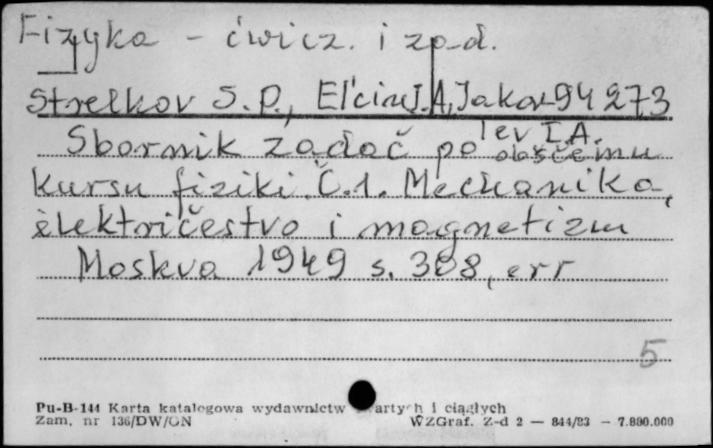 Fizyka - ćwicz. i zad.
Strelkov S.P., El'cin I.A, Jakov- 94 273
lev I.A.
Sbornik zadač po obščemu
kursu fiziki. Č.1. Mechanika,
èlektričestvo i magnetizm
Moskva 1949 s. 308, err
5
Pu-B-144 Karta katalogowa wydawnictw zwartych i ciągłych
Zam. nr 136/DW/ON WZGraf. Z-d 2 — 844/83 — 7.800.000